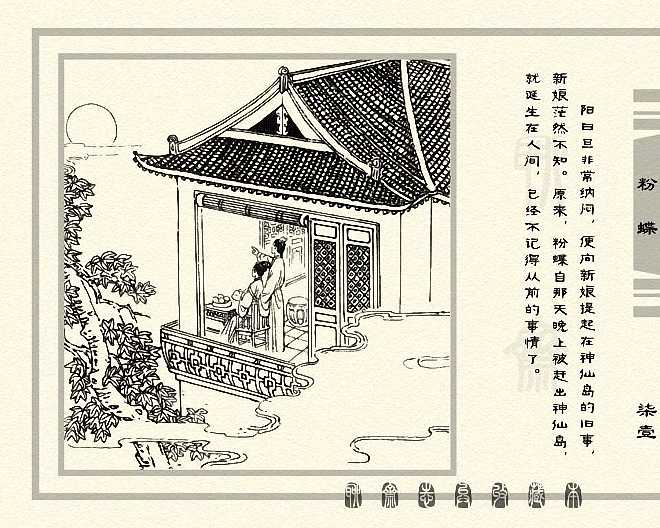 阳曰旦非常纳闷，便向新娘提起在神仙岛的旧事，
新娘茫然不知。原来，粉蝶自那天晚上被赶出神仙岛，
就诞生在人间，已经不记得从前的事情了。
粉蝶
柒壹
聊斋志异收藏本